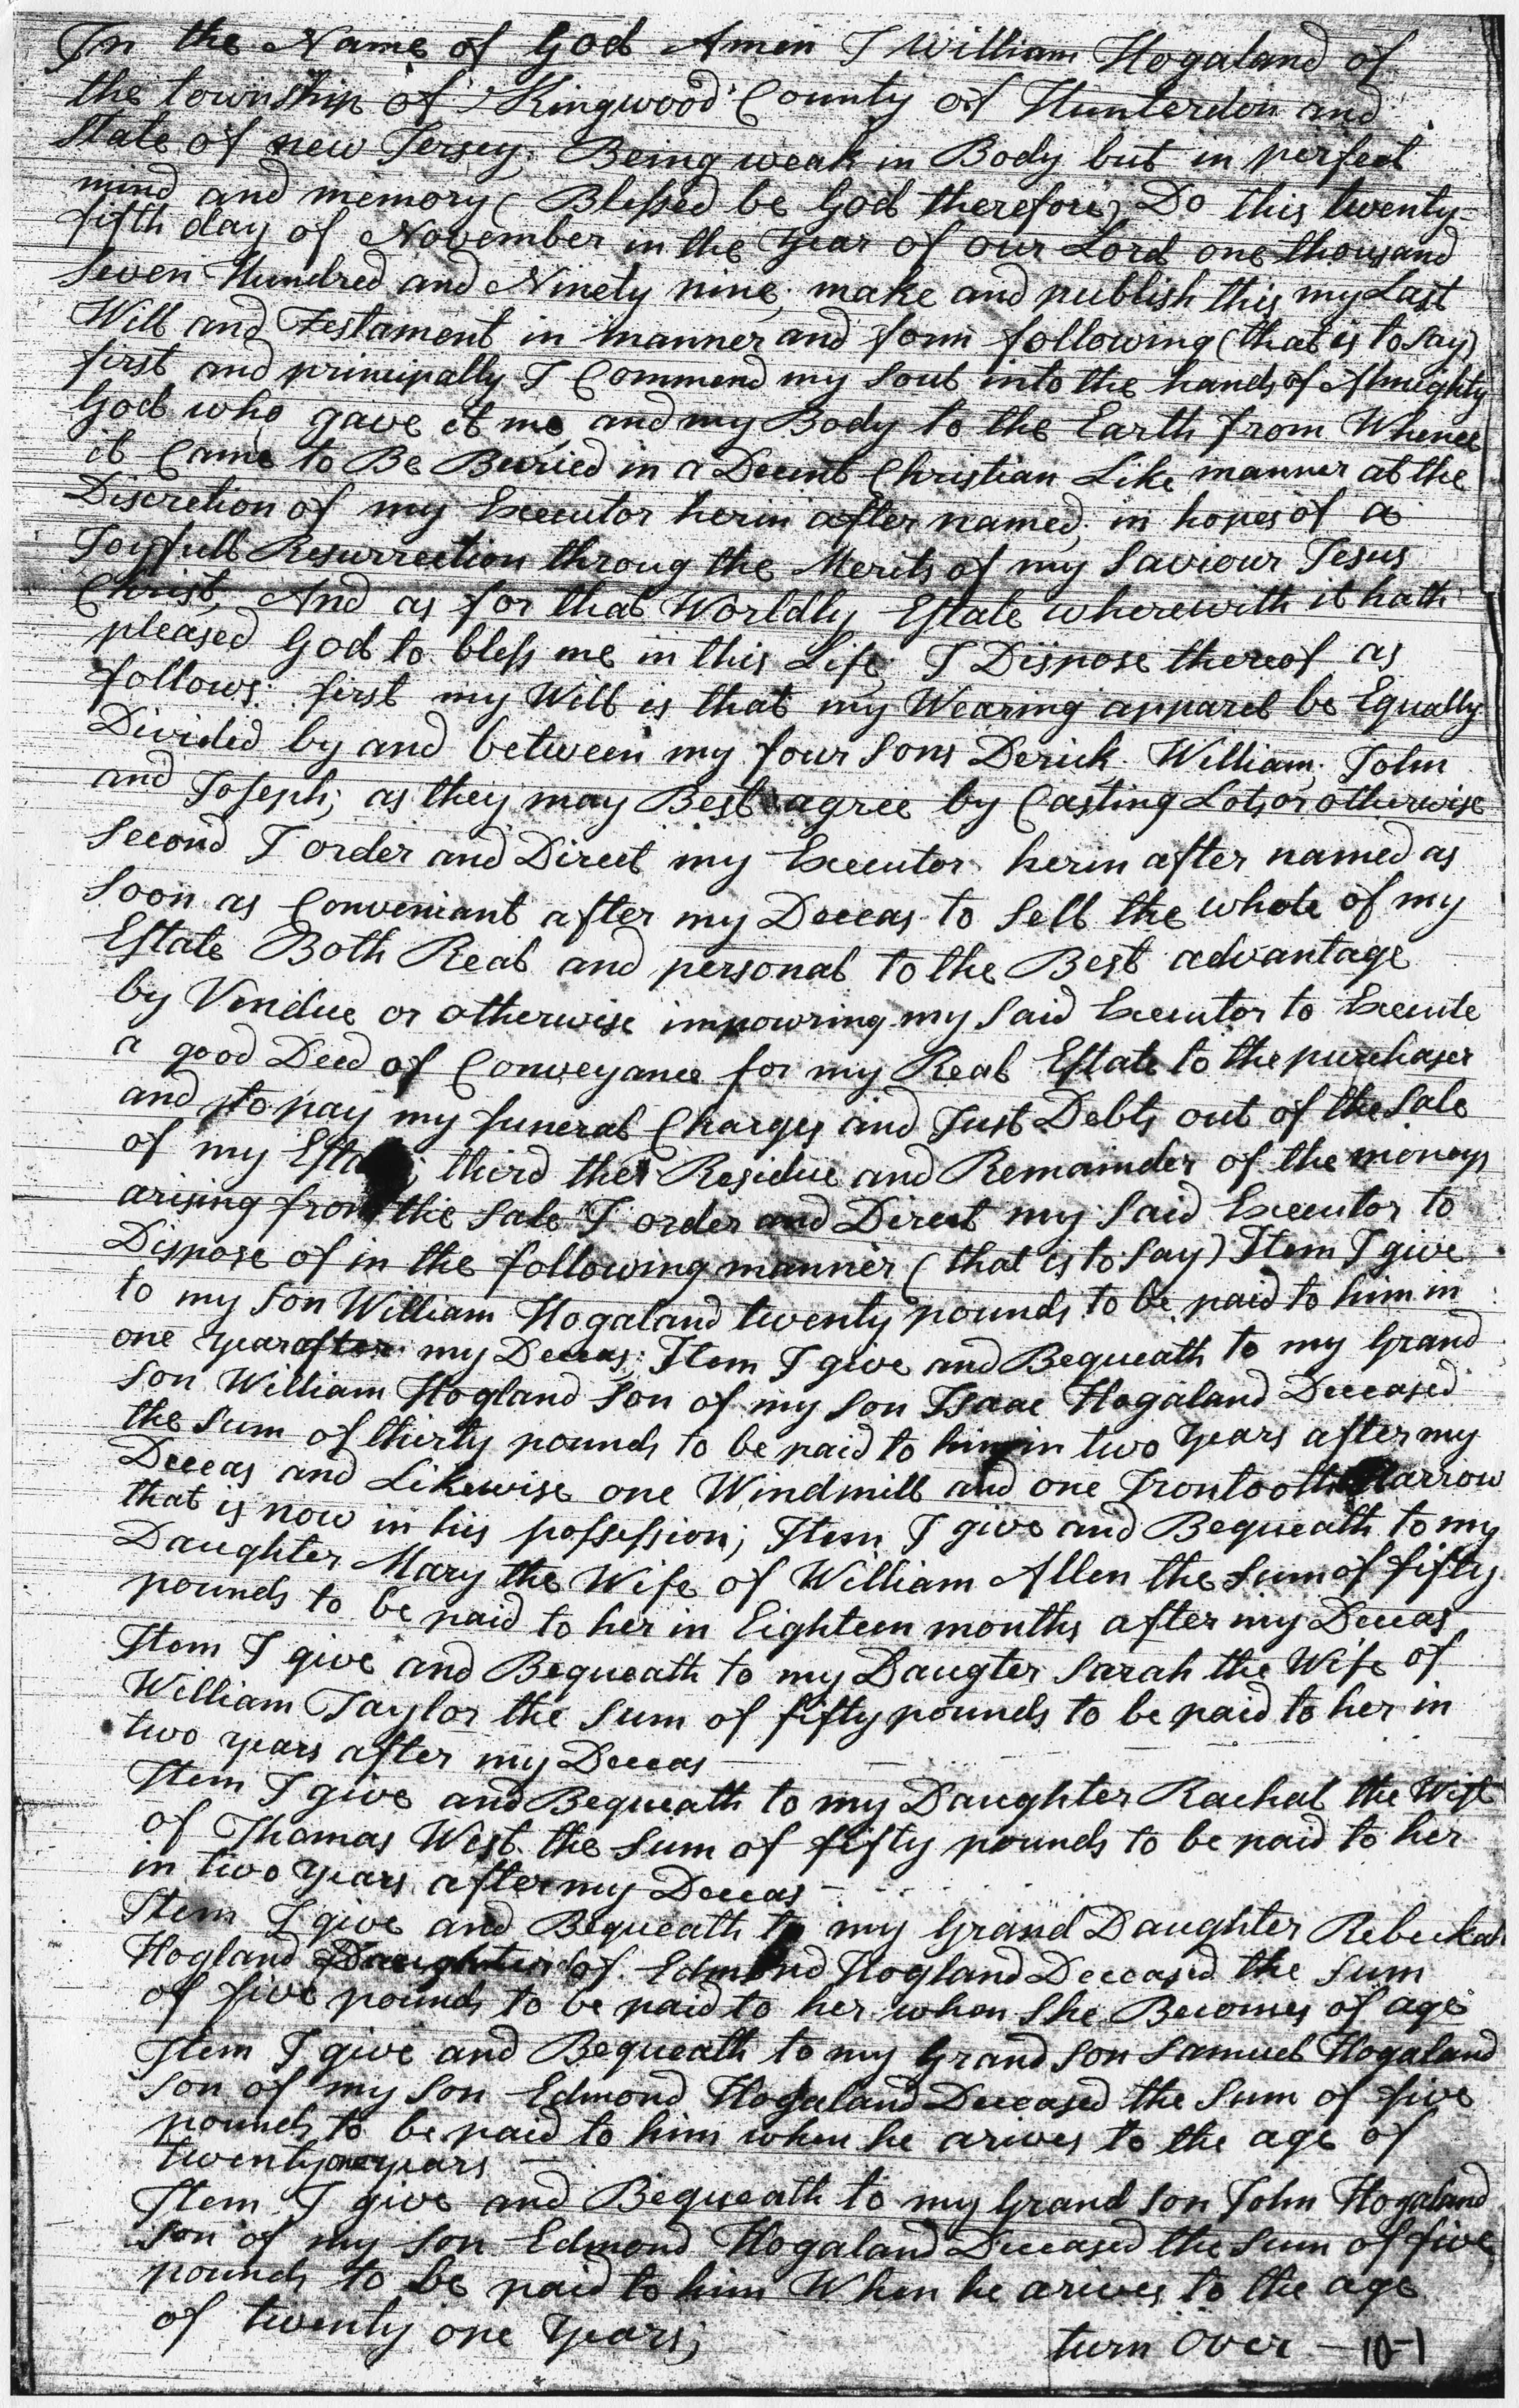 In the Name of God Amen I William Hogaland of
the township of Kingwood County of Hunterdon and
State of new Jersey; Being weak in Body but in perfect
mind and memory (Blessed be God therefore) Do this twenty=
fifth day of November in the year of our Lord one thousand
Seven Hundred and Ninety nine; make and publish this my Last
Will and Testament in manner and form following (that is to Say)
first and principally I Commend my Soul into the hands of Almighty
God who gave it me, and my Body to the Earth from Whence
it Came to Be Buried in a Decent Christian Like manner at the
Discretion of my Executor herin after named; in hopes of a
Joyfull Resurrection throug the Merits of my Saviour Jesus
Christ; And as for that Worldly Estate wherewith it hath
pleased God to bless me in this Life; I Dispose thereof as
follows: first my Will is that my Wearing apparel be Equally
Divided by and between my four Sons Derick. William; John
and Joseph; as they may Best agree by Casting Lots or otherwise
Second I order and Direct my Executor herin after named as
Soon as Conveniant after my Deceas to Sell the whole of my
Estate Both Real and personal to the Best advantage
by Vendue or otherwise impowring my Said Executor to Execute
a good Deed of Conveyance for my Real Estate to the purchaser
and to pay my funeral Charges and Just Debts out of the Sale
of my Estate; third the Residue and Remainder of the moneys
arising from the Sale I order and Direct my Said Executor to
Dispose of in the following manner (that is to Say) Item I give
to my Son William Hogaland twenty pounds to be paid to him in
one year after my Deceas; Item I give and Bequeath to my Grand
Son William Hogland Son of my Son Isaac Hogaland Deceased
the Sum of thirty pounds to be paid to him in two years after my
Deceas and Likewise one Windmill and one Irontooth Harrow
that is now in his possession; Item I give and Bequeath to my
Daughter Mary the Wife of William Allen the Sum of fifty
pounds to be paid to her in Eighteen months after my Deceas
Item I give and Bequeath to my Daugter Sarah the Wife of
William Taylor the Sum of fifty pounds to be paid to her in
two years after my Deceas
Item I give and Bequeath to my Daughter Rachal the Wife
of Thomas West the Sum of fifty pounds to be paid to her
in two years after my Deceas
Item I give and Bequeath to my Grand Daughter Rebeckah
Hogland Daughter of Edmond Hogland Deceased the Sum
of five pounds to be paid to her when She Becomes of age
Item I give and Bequeath to my Grand Son Samuel Hogaland
Son of my Son Edmond Hogaland Deceased the Sum of five
pounds to be paid to him when he arives to the age of
twenty one years
Item I give and Bequeath to my Grand Son John Hogaland
Son of my Son Edmond Hogaland Deceased the Sum of five
pounds to be paid to him When he arives to the age
of twenty one years;
turn Over — 10-1